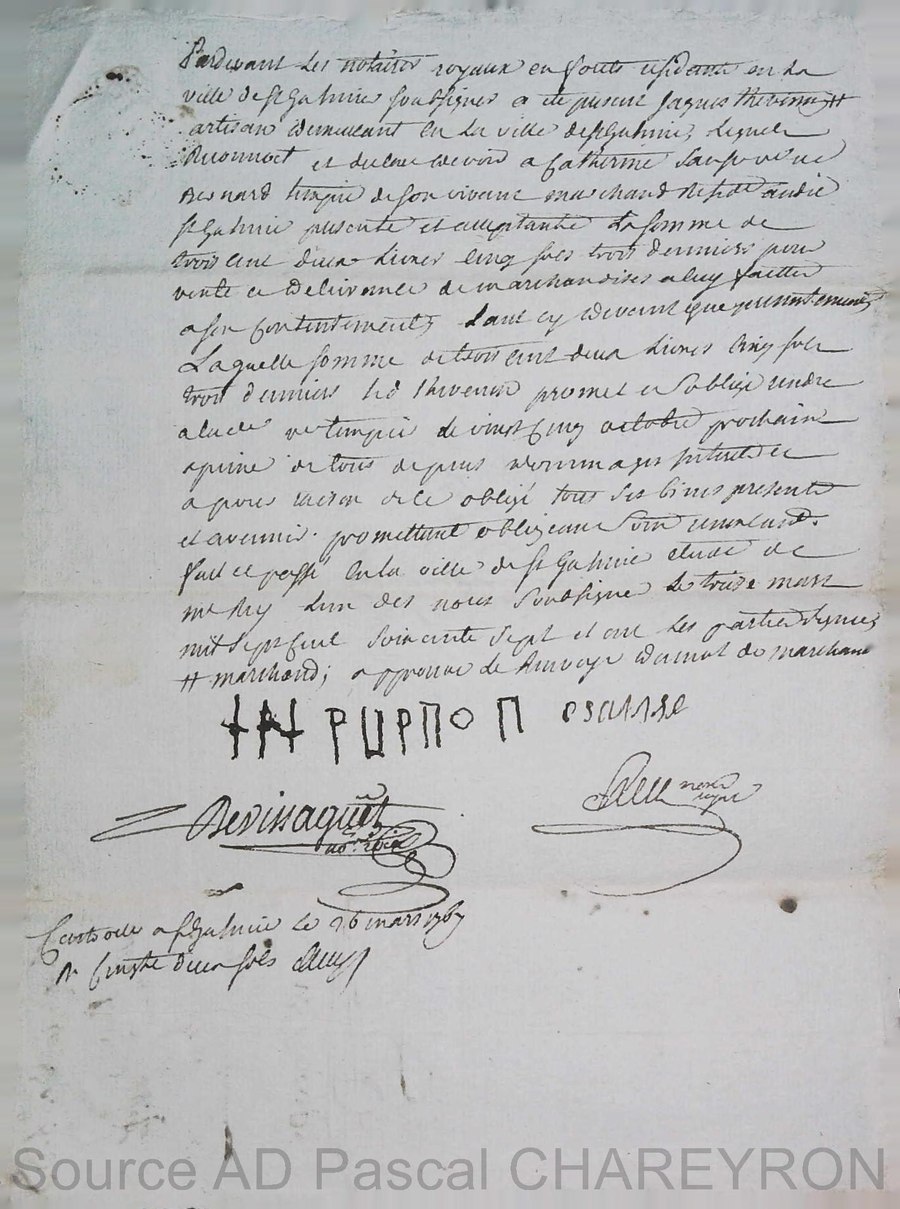 Pardevant Les notaires royaux en forets residants en La
ville de St Galmier soubsignes a été present Jaques thevenin #
artisan demeurant en La ville de St Galmier, Lequel
Reconnoit et declare devoir a Catherine
Besnard de son vivant marchand audit
St Galmier presente et acceptante La somme de
trois cent deux Livres Cinq sols trois denniers pour
vente et Delivrance de marchandises a luy faitte
a son Contentement, tant cy devant que presentement
Laquelle somme de trois cent deux Livres Cinq sols
trois denniers led thevenin promet et s'oblige rendre
a lade de vingt Cinq octobre prochain
a peine de tous depens dommages interets et
a pour raison de ce obligé tous ses biens presents
et avenir. promettant obligeant renoncant.
fait et passé En La ville de St Galmier etude de
me Rey L'un des nores soubsigne Le treize mars
mil sept cent soixante sept et ont Les parties signés
# marchand; approuve Le Renvoye du mot de marchand
Devissaguet
nore royal
nore
royal
Controlle a St Galmier Le 26 mars 1767
R sols
Source AD Pascal CHAREYRON